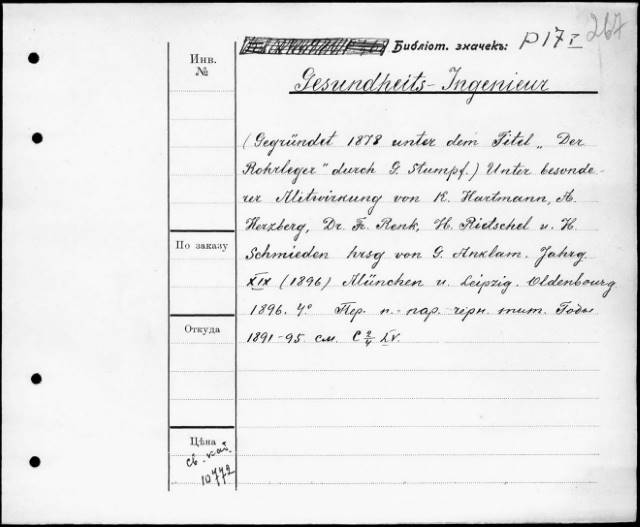 267
Библіот. значекъ: P 17 I
Инв.
№
Gesundheits-Ingenieur
(Gegründet 1878 unter dem Titel „Der
Rohrleger" durch G. Stumpf.) Unter besonde-
rer Mitwirkung von K. Hartmann, A.
Herzberg, Dr. Fr. Renk, H. Rietschel u. H.
Schmieden hrsg von G. Anklam. Jahrg
XIX (1896) München u. Leipzig. Oldenbourg
1896. 4° Пер. п.-пар. черн. тит. Годы
1891-95 см. C 2/4 LV.
По заказу
Откуда
Цѣна
св. кат.
10772